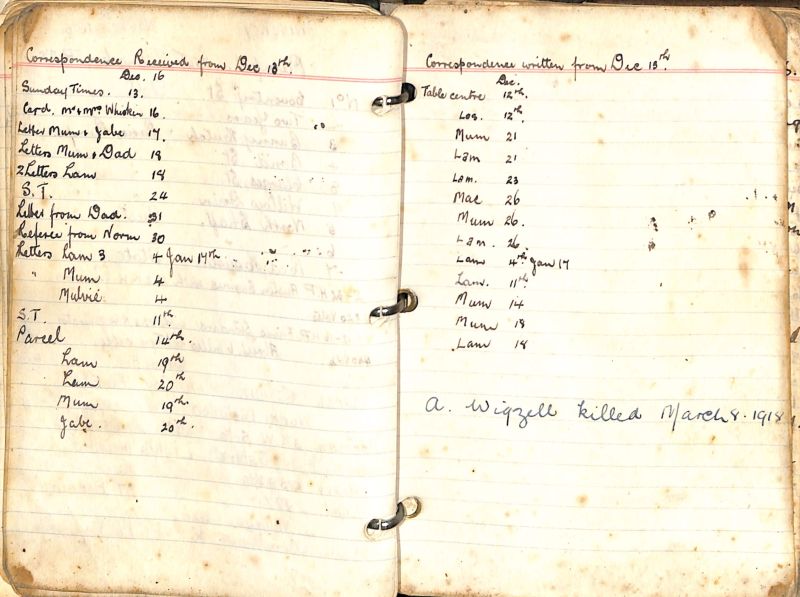 Correspondence Received from Dec 13th.
Dec. 16
Sunday Times. 13.
Card. Mr & Mrs Whisken 16.
Letter Mum & Jabe 17.
Letters Mum & Dad 18
2 Letters Lam 18
S.T. 24
Letter from Dad. 31
Referee from Norm 30
Letters Lam 3 4 Jan 17th
" Mum 4
Mulvie 4
S.T. 11th.
Parcel 14th.
Lam 19th
Lam 20th
Mum 19th
Jabe. 20th.
Correspondence written from Dec 13th.
Dec.
Table centre 12th.
Les. 12th.
Mum 21
Lam 21
Lam. 23
Mac 26
Mum 26.
Lam. 26
Lam 4th Jan 17
Lam. 11th.
Mum 14
Mum 18
Lam 18
A. Wigzell killed March 8. 1918